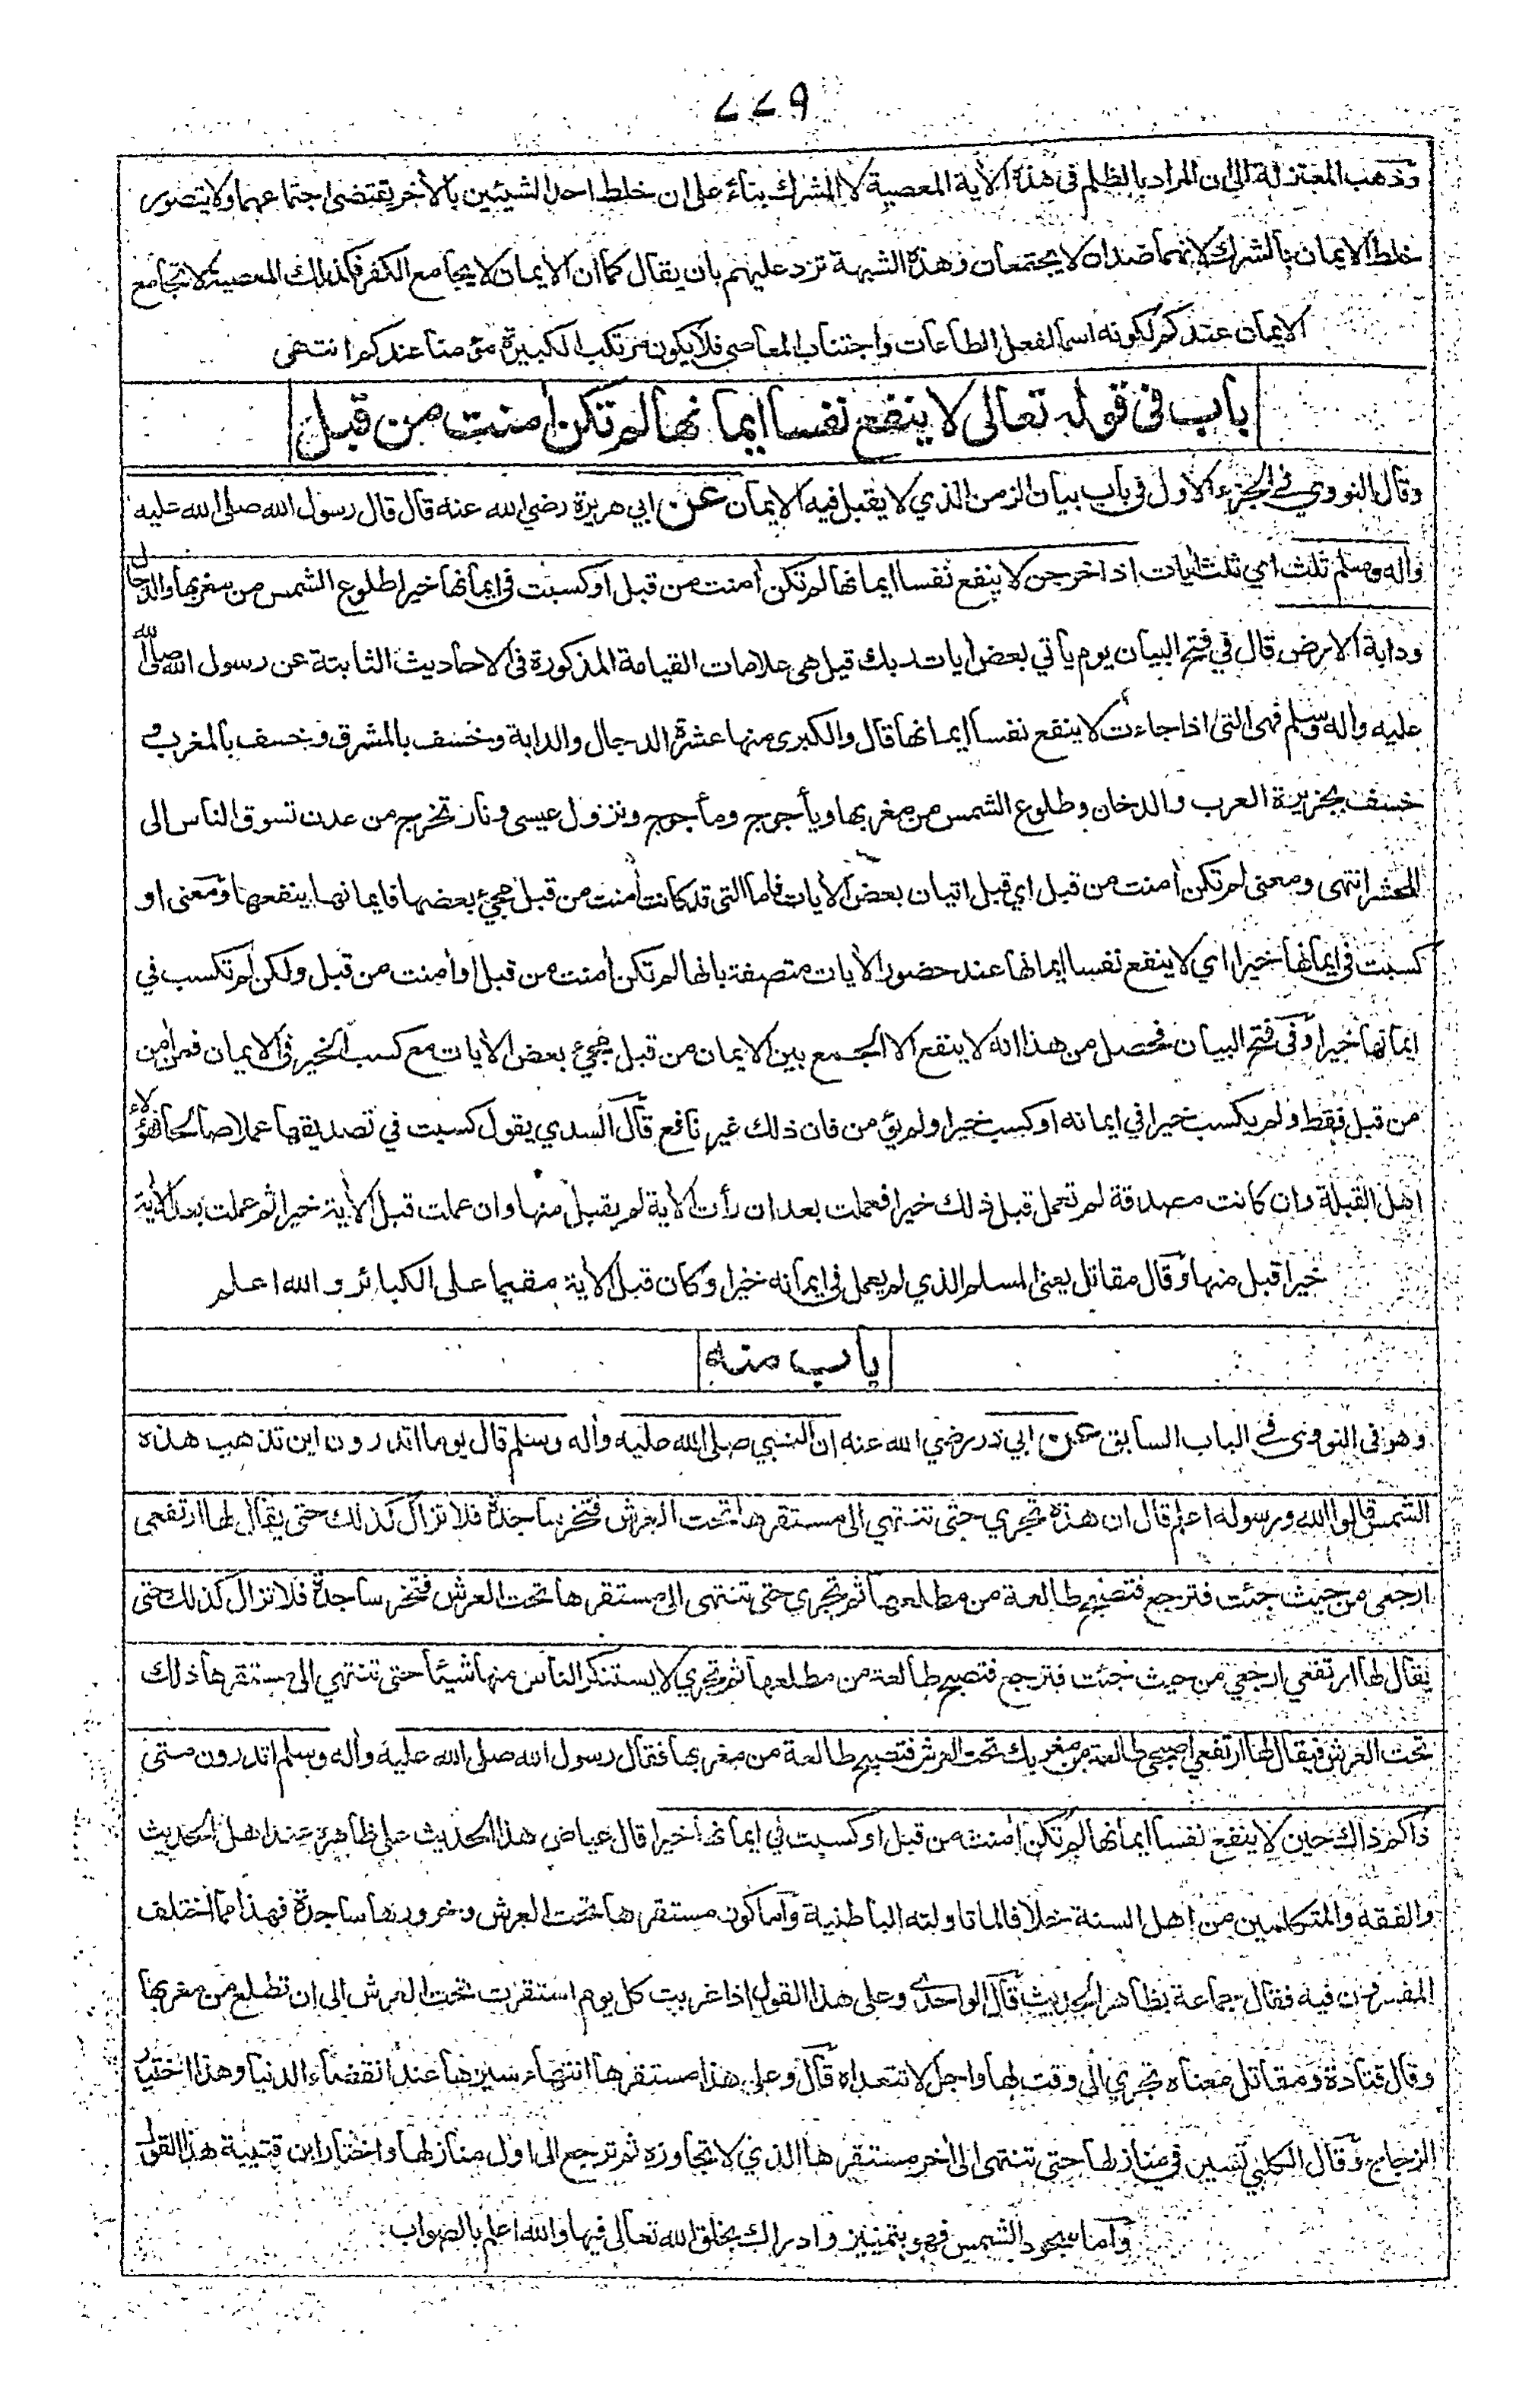 ٦٧٧
وذهب المعتزلة الى ان المراد بالظلم في هذه الأية المعصية لا الشرك بناء على ان خلط احد الشيئين بالأخر يقتضى اجتماعهما ولا يتصور
خلط الايمان بالشرك لانهما ضدان لا يجتمعان وهذه الشبهة ترد عليهم بان يقال كما ان الايمان لا يجامع الكفر فكذلك المعصية لا تجامع
الايمان عندكم لكونه اسما لفعل الطاعات واجتناب المعاصي فلا يكون مرتكب الكبيرة مؤمنا عندكم انتهى
باب فى قوله تعالى لا ينفع نفسا ايمانها لم تكن أمنت من قبل
وقال النووي في الجزء الاول في باب بيان الزمن الذي لا يقبل فيه الايمان عن ابي هريرة رضي الله عنه قال قال رسول الله صلى الله عليه
وأله وسلم ثلث اي ثلث أيات اذا خرجن لا ينفع نفسا ايمانها لم تكن أمنت من قبل او كسبت في ايمانها خيرا طلوع الشمس من مغربها والدجال
ودابة الارض قال في فتح البيان يوم يأتي بعض أيات ربك قيل هى علامات القيامة المذكورة فى الاحاديث الثابتة عن رسول الله صلى الله
عليه وأله وسلم فهى التى اذا جاءت لا ينفع نفسا ايمانها قال والكبرى منها عشرة الدجال والدابة وخسف بالمشرق وخسف بالمغرب و
خسف بجزيرة العرب والدخان وطلوع الشمس من مغربها ويأجوج ومأجوج ونزول عيسى ونار تخرج من عدن تسوق الناس الى
المحشر انتهى ومعنى لم تكن أمنت من قبل اي قبل اتيان بعض الأيات فاما التى قد كانت أمنت من قبل مجئ بعضها فايمانها ينفعها ومعنى او
كسبت فى ايمانها خيرا اي لا ينفع نفسا ايمانها عند حضور الأيات متصفة بانها لم تكن أمنت من قبل او أمنت من قبل ولكن لم تكسب في
ايمانها خيرا وفى فتح البيان فحصل من هذا انه لا ينفع الا الجمع بين الايمان من قبل مجئ بعض الأيات مع كسب الخير فى الايمان فمن أمن
من قبل فقط ولم يكسب خيرا في ايمانه او كسب خيرا ولم يؤمن فان ذلك غير نافع قال السدي يقول كسبت في تصديقها عملا صالحا فهؤلاء
اهل القبلة وان كانت مصدقة لم تعمل قبل ذلك خيرا فعملت بعد ان رأت الأية لم يقبل منها وان عملت قبل الأية خيرا ثم عملت بعد الأية
خيرا قبل منها وقال مقاتل يعنى المسلم الذي لم يعمل في ايمانه خيرا وكان قبل الأية مقيما على الكبائر و الله اعلم
باب منه
وهو فى النووى في الباب السابق عن ابي ذر رضي الله عنه ان النبي صلى الله عليه وأله وسلم قال يوما اتدرون اين تذهب هذه
الشمس قالوا الله ورسوله اعلم قال ان هذه تجري حتى تنتهي الى مستقرها تحت العرش فتخر ساجدة فلا تزال كذلك حتى يقال لها ارتفعى
ارجعى من حيث جئت فترجع فتصبح طالعة من مطلعها ثم تجري حتى تنتهى الى مستقرها تحت العرش فتخر ساجدة فلا تزال كذلك حتى
يقال لها ارتفعي ارجعي من حيث جئت فترجع فتصبح طالعة من مطلعها ثم تجري لا يستنكر الناس منها شيئا حتى تنتهي الى مستقرها ذلك
تحت العرش فيقال لها ارتفعي اصبحي طالعة من مغربك تحت العرش فتصبح طالعة من مغربها فقال رسول الله صلى الله عليه وأله وسلم اتدرون متى
ذاكم ذاك حين لا ينفع نفسا ايمانها لم تكن أمنت من قبل او كسبت في ايمانها خيرا قال عياض هذا الحديث على ظاهره عند اهل الحديث
والفقه والمتكلمين من اهل السنة خلافا لما تاولته الباطنية وأما كون مستقرها تحت العرش وخرورها ساجدة فهذا مما اختلف
المفسرون فيه فقال جماعة بظاهر الحديث قال الواحدى وعلى هذا القول اذا غربت كل يوم استقرت تحت العرش الى ان تطلع من مغربها
وقال قتادة ومقاتل معناه تجري الى وقت لها واجل لا تتعداه قال وعلى هذا مستقرها انتهاء سيرها عند انقضاء الدنيا وهذا اختيار
الزجاج وقال الكلبي تسير في منازلها حتى تنتهى الى أخر مستقرها الذي لا تجاوزه ثم ترجع الى اول منازلها واختار ابن قتيبة هذا القول
وأما سجود الشمس فهو بتمييز وادراك يخلق الله تعالى فيها والله اعلم بالصواب